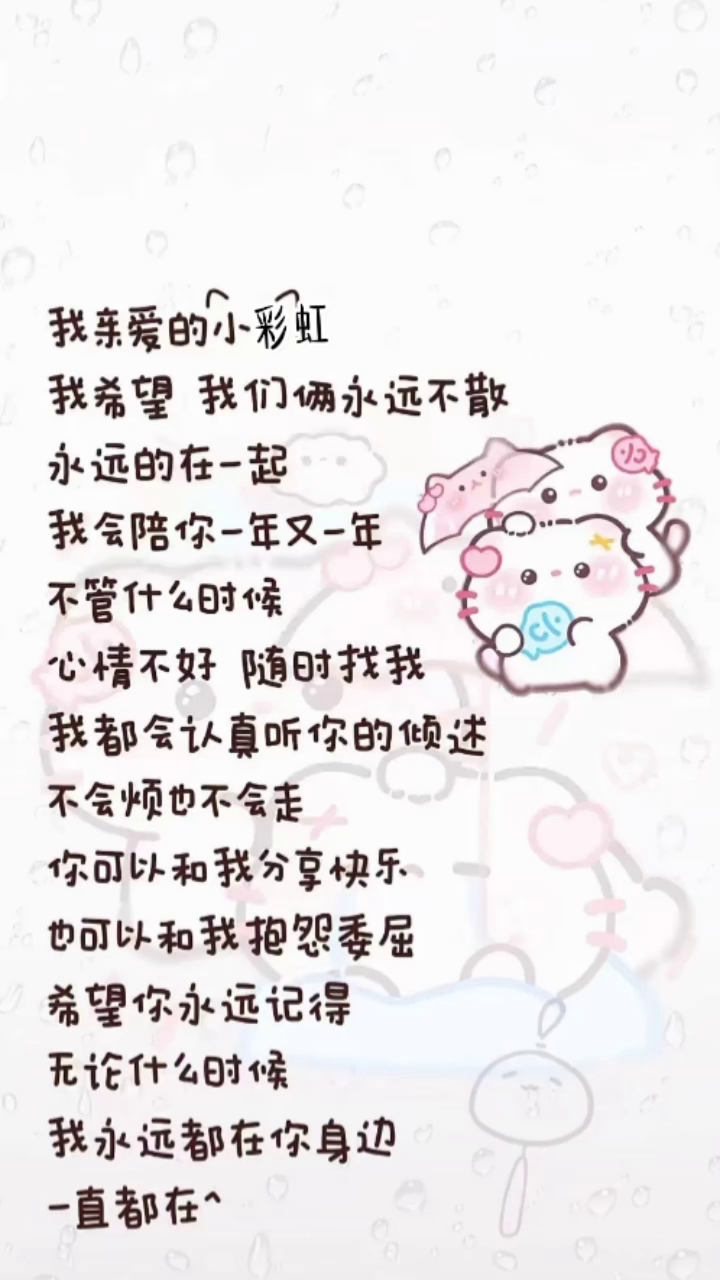 我亲爱的小彩虹
我希望 我们俩永远不散
永远的在一起
我会陪你一年又一年
不管什么时候
心情不好 随时找我
我都会认真听你的倾述
不会烦也不会走
你可以和我分享快乐
也可以和我抱怨委屈
希望你永远记得
无论什么时候
我永远都在你身边
一直都在^